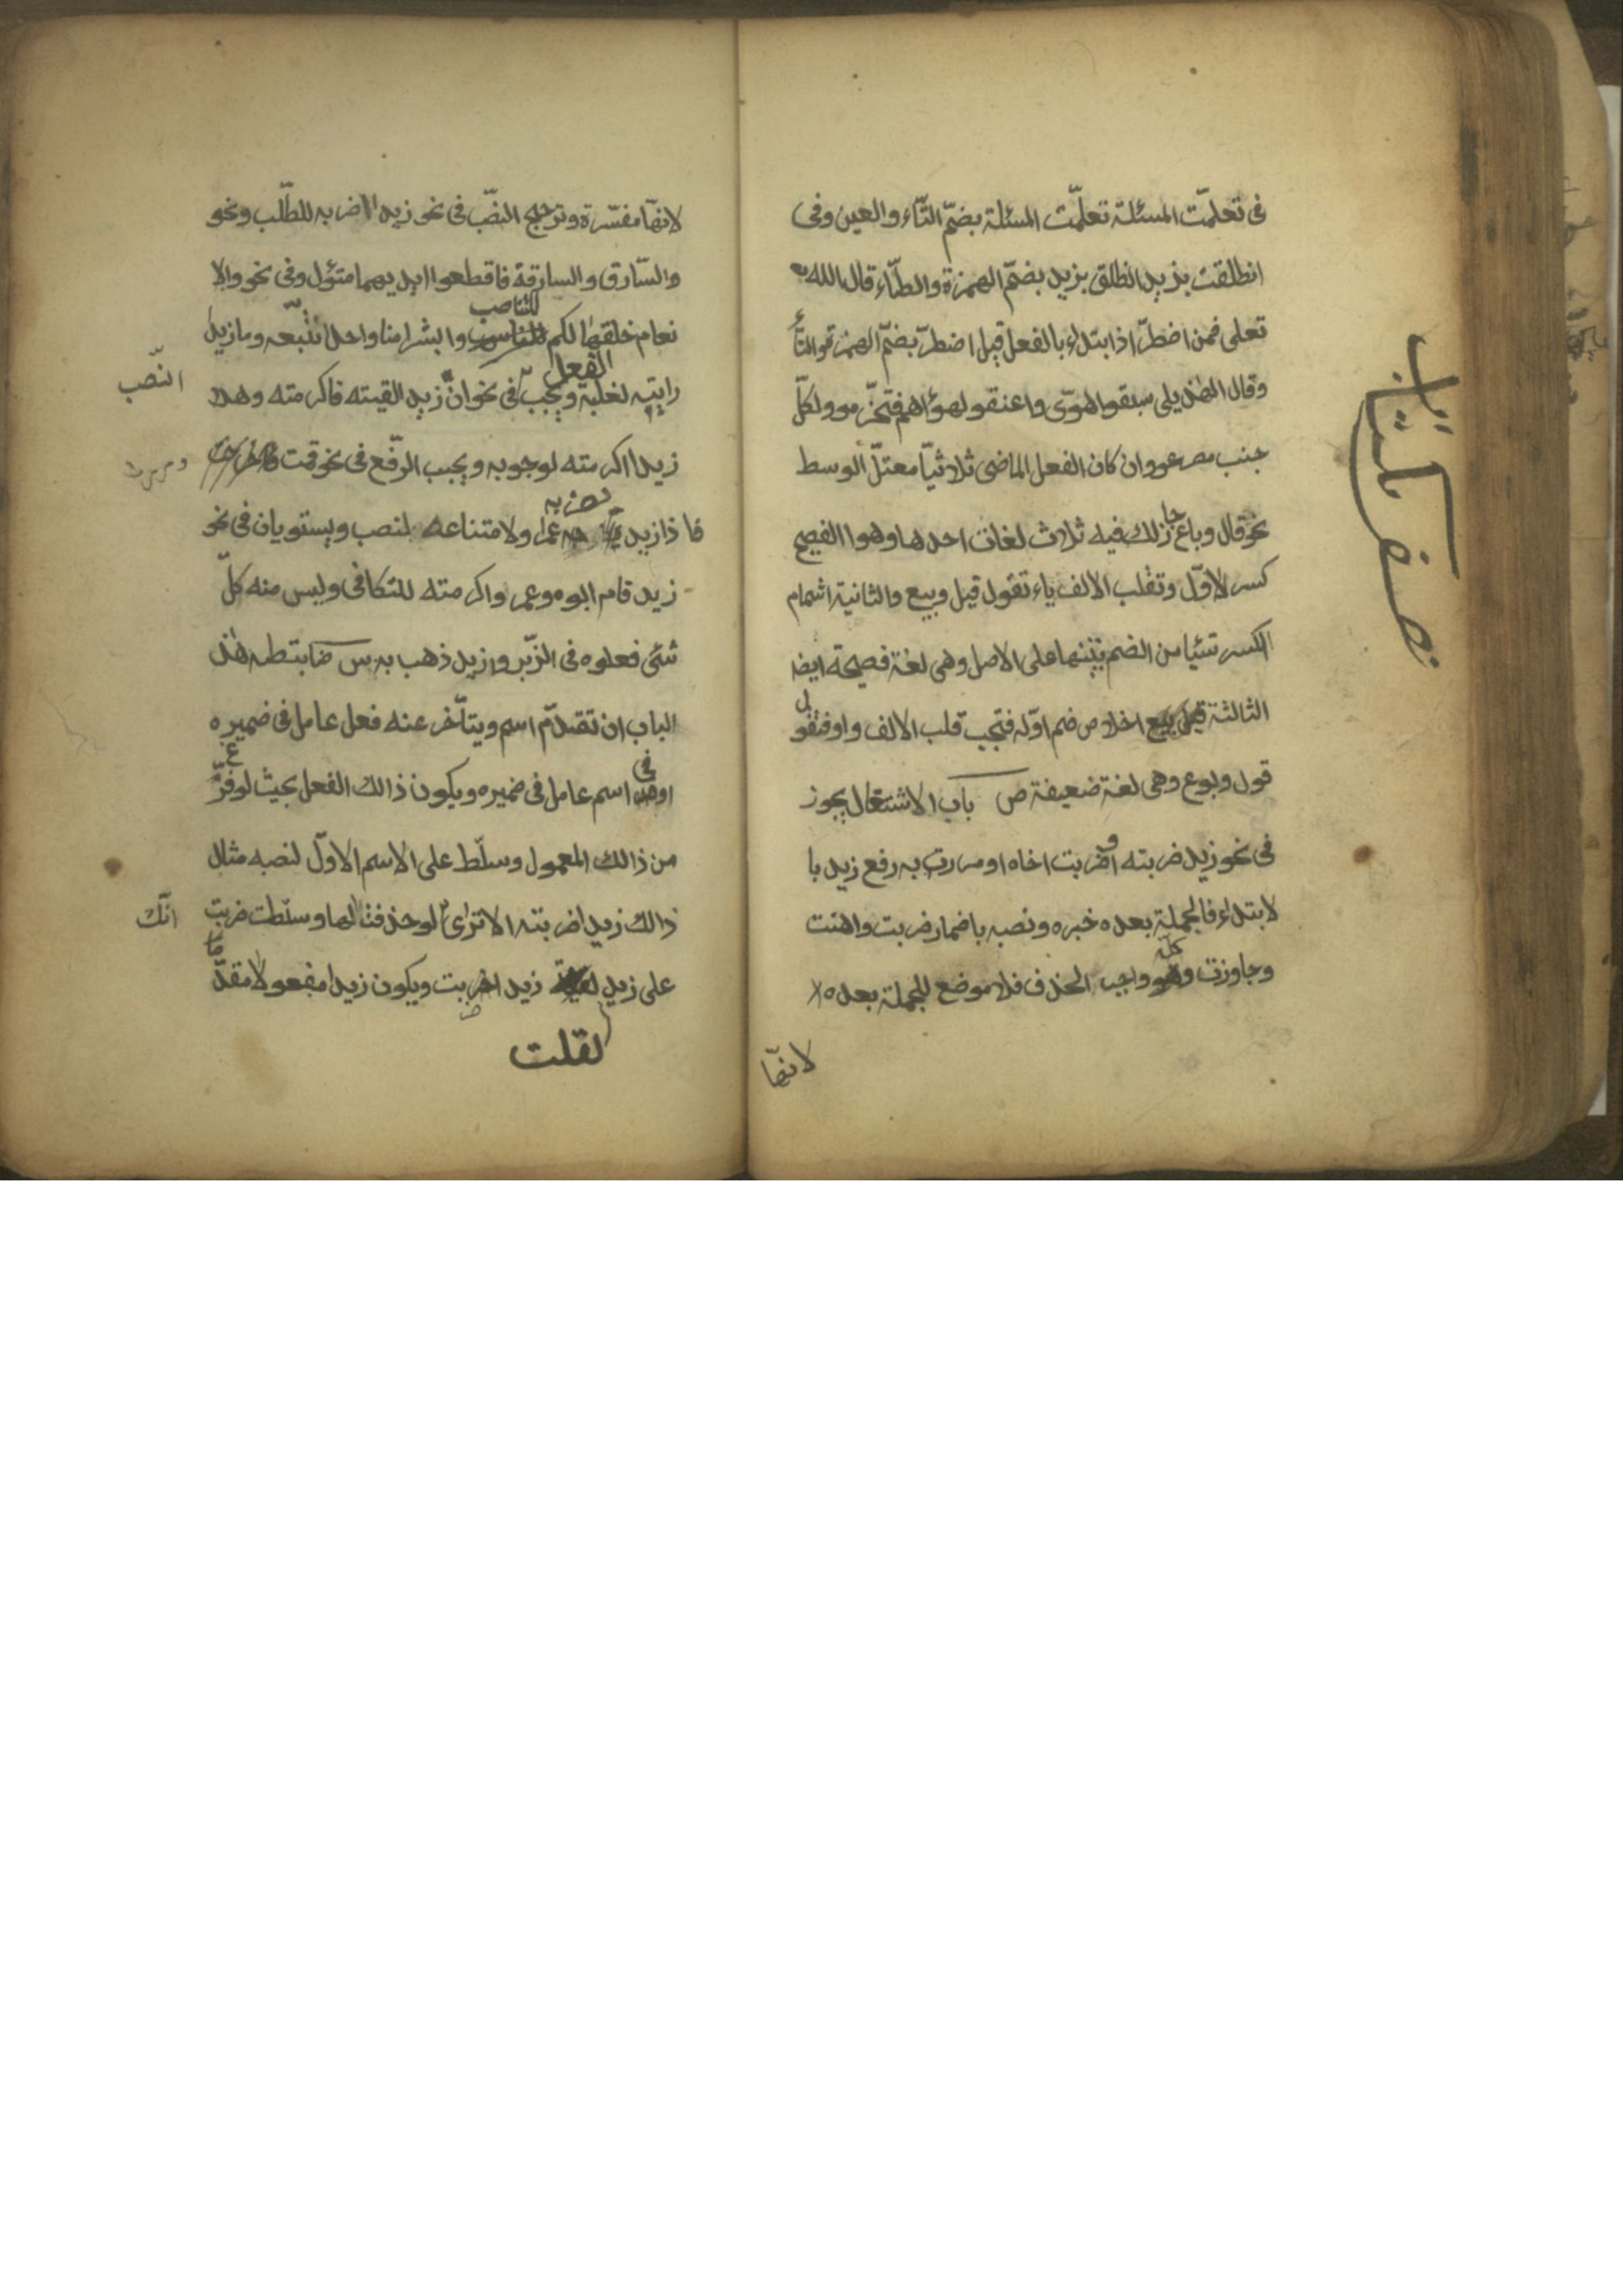 فى تعلمّت المسئلة تعلمّت المسئلة بضمّ التّاء والعين وفى
انطلقت بزيد انطلق بزيد بضمّ الهمزة والطّاء قال الله
تعلى فمن اضطرّ اذا ابتداء بالفعل قيل اضطرّ بضمّ الهمزة والتّا
وقال الهذيلى سبقوا هوّى واعنقو لهواهم فتخرّموو ولكلّ
جنب مصرعو وان كان الفعل الماضى ثلاثيّا معتلّ الوسط
نحو قال وباع جاز لك فيه ثلاث لغات احدها وهوا الفصيح
كسر لاوّل وتقلب الالف ياء تقول قيل وبيع والثانية اشمام
الكسر شيئا من الضم تنبيها على الاصل وهى لغة فصيحة ايضا
الثالثة اخلاص ضم اوّله فتجب قلب الالف واو فتقول
قول وبوع وهى لغة ضعيفة ص باب الاشتغال يجوز
فى نحو زيد ضربته او ضربت اخاه او مررت به رفع زيد با
لابتداء فالجملة بعده خبره ونصبه باضمار ضربت واهنت
وجاوزت واجب الحذف فلا موضع للجملة بعده
لانهّا
نصف كتاب
لانهّا مفسّرة وترجح النصّب فى نحو زيدا اضربه للطّلب ونحو
والسّارق والسارقة فاقطعوا ايديهما متؤل وفى نحو والا
نعام خلقها لكم للتناسب وابشرا منا واحدا نتّبعه وما زيدا
رايته لغلبة الفعل ويجب فى نحو ان زيدا لقيته فاكرمته وهلا
النّصب
زيدا اكرمته لوجوبه ويجب الرفّع فى نحو قمت
فاذا زيد يضربه عمرا ولامتناعه لنصب ويستويان فى نحو
زيد قام ابوه وعمر واكرمته للتكافى وليس منه كلّ
شئى فعلوه فى الزّبر وازيد ذهب به س ضابتطه هذ
الباب ان تقدّم اسم ويتأخّر عنه فعل عامل فى ضميره
او اسم عامل فى ضميره ويكون ذالك الفعل بحيث لو فرّغ
من ذالك المعمول وسلّط على الاسم الاوّل لنصبه مثال
ذالك زيدا ضربته الا ترى لو حذفت الها وسلّطت ضربت
انّك
على زيد زيدا ضربت ويكون زيدا مفعولا مقدّما
لقلت